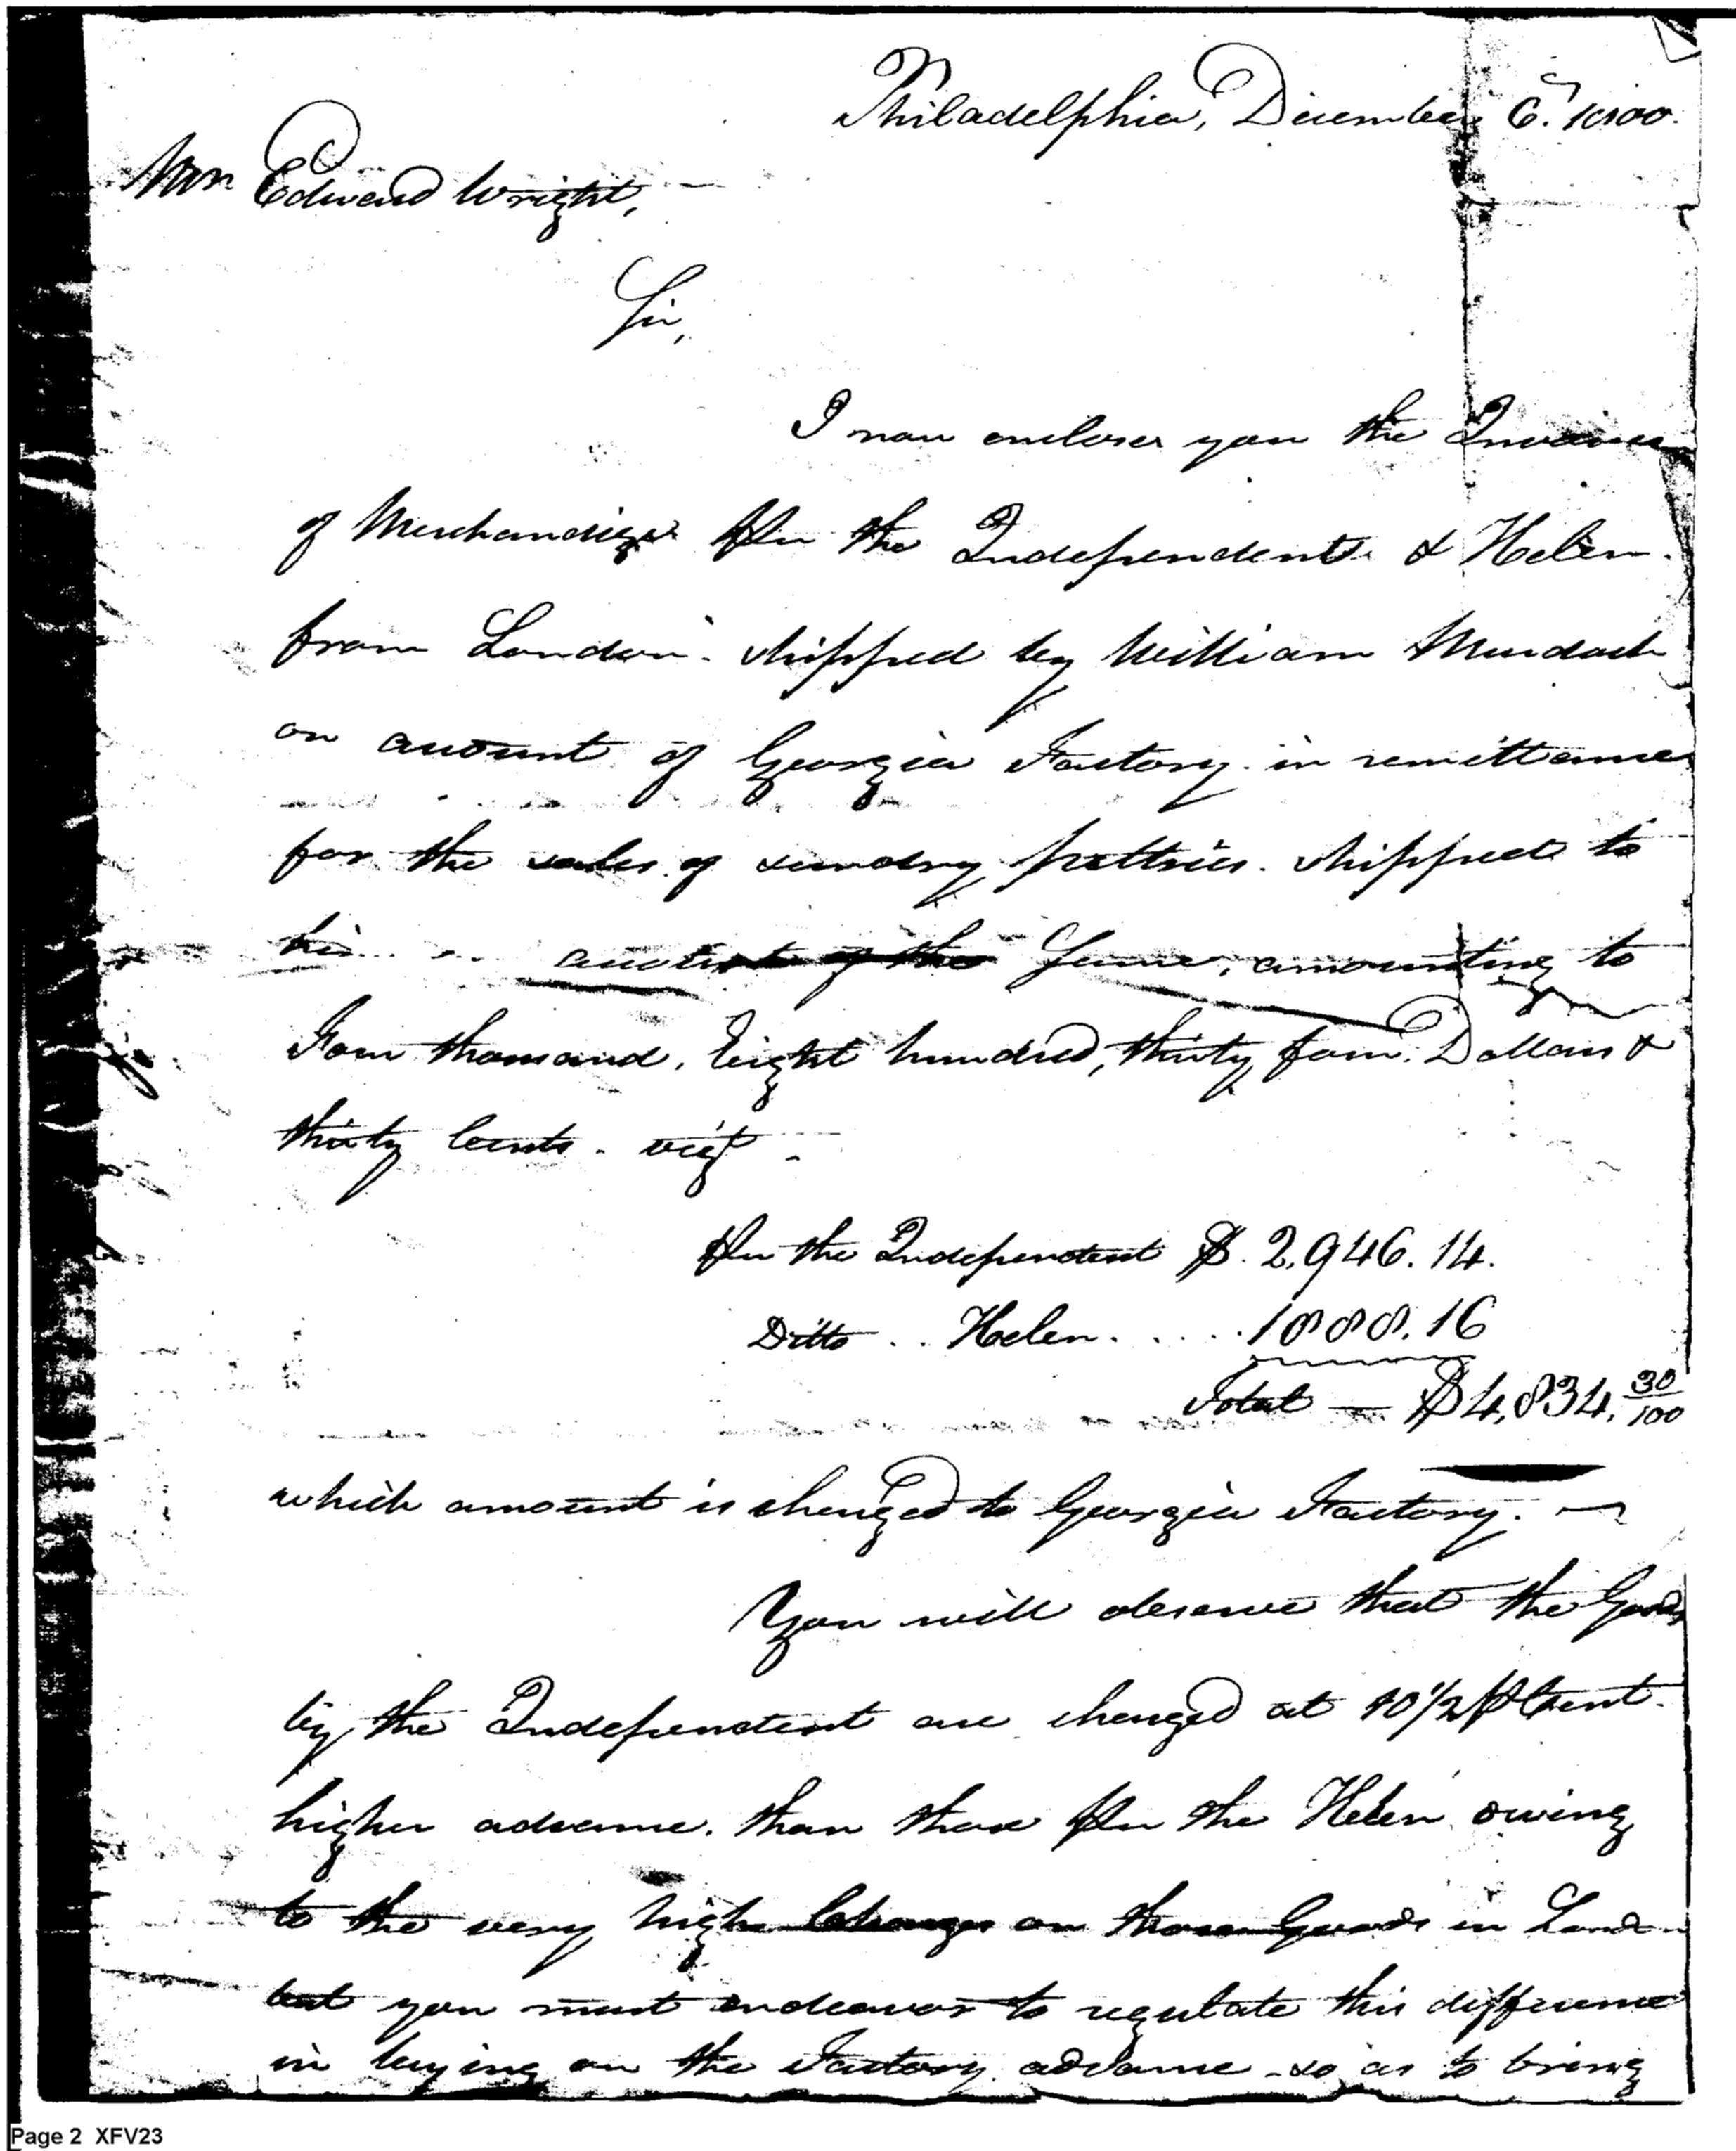 Philadelphia, December 6. 1800.
Edward Wright,
Sir,
I now enclose you the Invoices
of Merchandize ⅌er the Independent & Helen
from London. shipped by William Murdoch
on account of Georgia Factory. in remittance
for the sales of sundry peltries. shipped to
him account of the Same, amounting to
Four thousand, Eight hundred, thirty four Dollars &
thirty Cents. vizt.
⅌er the Independent $. 2,946.14.
Ditto .. Helen. .... 1888.16
Total — $4,834. 30/100
which amount is charged to Georgia Factory. —
You will observe that the Goods
by the Independent are charged at 10½ ⅌ Cent.
higher advance. than those ⅌er the Helen owing
to the very high Charges on those Goods in
but you must endeavor to regulate this difference
in laying on the Factory advance - so as to bring
Page 2 XFV23